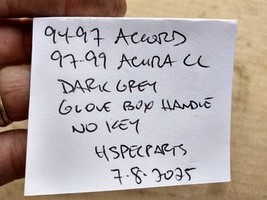 94-97 ACCORD
97-99 ACURA CL
DARK GREY
GLOVE BOX HANDLE
NO KEY
HSPECPARTS
7-8-2025